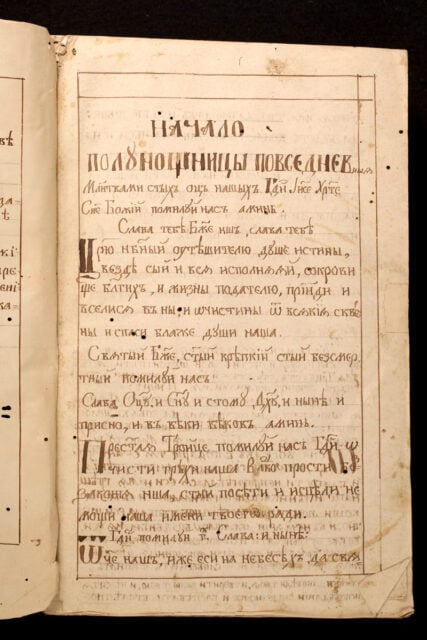 НАЧАЛО
ПОЛУНОЩНИЦЫ ПОВСЕДНЕВныя
Млитвами стыхъ оцъ нашыхъ Гди Іисе Хрте
Сне Божій помилуй насъ аминь.
Слава тебѣ Бже ншъ, слава тебѣ
Црю нбный оутѣшителю душе истины,
Иже вездѣ сый и вся исполняяй, сокрови
ще блгихъ, и жизны подателю, пріиди и
вселися въ ны, и ѡчистины ѿ всякія скве
ны и спаси блаже души наша.
Святый Бже, стый крѣпкій стый безсмер
тный помилуй насъ
Слава Оцу, и Сну и стому Дху, и нынѣ и
присно, и въ вѣки вѣковъ аминь.
Престая Троице помилуй насъ Гди ѡ
чисти грѣхи наша Влко прости бе
законія нша, стый посѣти и исцѣли не
мощи наша имени твоего ради.
Гди помилуи г҃. Слава: и нынѣ:
Ѿче нашъ, иже еси на небесѣхъ, да свя